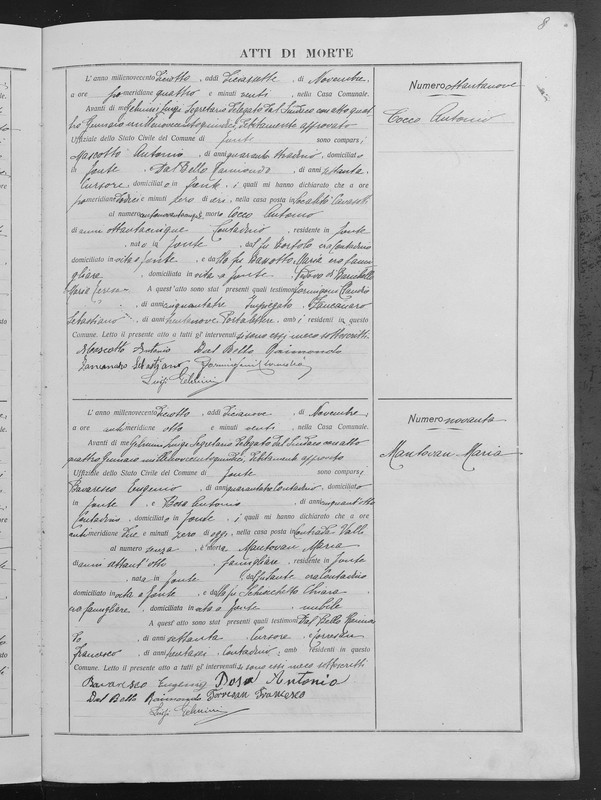 8
ATTI DI MORTE
L'anno millenovecento diciotto, addì diciassette di Novembre,
a ore pomeridiane quattro e minuti venti, nella Casa Comunale.
Avanti di me Gelmini Luigi Segretario Delegato dal Sindaco con atto quat
tro Gennaio millenovecentoquindici, debitamente approvato
Uffiziale dello Stato Civile del Comune di Fonte sono comparsi;
Mascotto Antonio, di anni quaranta, domiciliato
in Fonte e Dal Bello Raimondo, di anni settanta,
Cursore, domiciliato in Fonte, i quali mi hanno dichiarato che a ore
pomeridiane dodici e minuti zero di ieri, nella casa posta in Località
al numero, è morto Cocco Antonio
di anni ottantacinque Contadino, residente in Fonte
, nato in Fonte, dal fu Bortolo era Contadino
domiciliato in vita a Fonte, e dalla fu Maria era fami
gliare, domiciliata in vita a Fonte. Vedovo di
Maria Teresa A quest'atto sono stati presenti quali testimoni Formigoni Claudio
, di anni cinquantatre Impiegato e Zancanaro
Sebastiano, di anni trentanove Portalettere, ambi residenti in questo
Comune. Letto il presente atto a tutti gl'intervenuti si sono essi meco sottoscritti.
Mascotto Antonio Dal Bello Raimondo
Zancanaro Sebastiano Formigoni Claudio
Luigi Gelmini
Numero ottantanove
Cocco Antonio
L'anno millenovecento diciotto, addì dicianove di Novembre,
a ore anti meridiane otto e minuti venti, nella Casa Comunale.
Avanti di me Gelmini Luigi Segretario Delegato dal Sindaco con atto
quattro Gennaio millenovecentoquindici, debitamente approvato
Uffiziale dello Stato Civile del Comune di Fonte sono comparsi;
Bavaresco Eugenio, di anni quarantatre Contadino, domiciliato
in Fonte e Dosa Antonio, di anni cinquant'otto
Contadino, domiciliato in Fonte, i quali mi hanno dichiarato che a ore
anti meridiane due e minuti zero di oggi, nella casa posta in Contrada Valli
al numero senza, è morta Mantovan Maria
di anni ottant'otto famigliare, residente in Fonte
, nata in Fonte, dal fu Sante era Contadino
domiciliato in vita a Fonte, e dalla fu Schiochetto Chiara
era famigliare, domiciliata in vita a Fonte, nubile
A quest'atto sono stati presenti quali testimoni Dal Bello Raimon
do, di anni settanta, Cursore e Torresan
Francesco, di anni Contadino; ambi residenti in questo
Comune. Letto il presente atto a tutti gl'intervenuti si sono essi meco sottoscritti
Bavaresco Eugenio Dosa Antonio
Dal Bello Raimondo Torresan Francesco
Luigi Gelmini
Numero novanta
Mantovan Maria